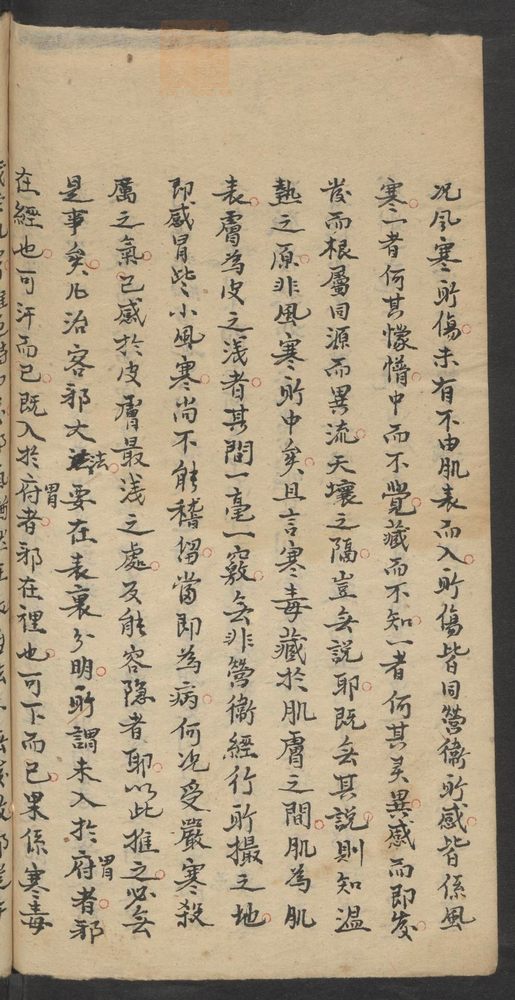 况風寒所傷未有不由肌表而入所傷皆同營衛所感皆係風
寒一者何其懞懵中而不覺藏而不知一者何其灵異感而即发
发而根属同源而異流天壤之隔豈无説耶既无其説則知温
熱之原非風寒所中矣且言寒毒藏於肌膚之間肌為肌
表膚為皮之浅者其間一毫一竅无非營衛經行所撮之地
即感冒些々小風寒尚不能稽留當即為病何况受嚴寒殺
厲之氣已感於皮膚最浅之處反能容隐者耶以此推之必无
是事矣凡治客邪大法要在表裏分明所謂未入於府者邪
胃
在經也可汗而已既入於府者邪在裡也可下而已果係寒毒
胃